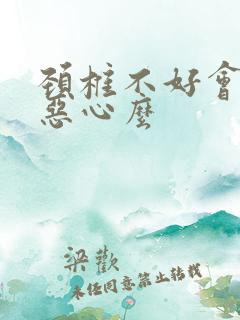 颈椎不好會
惡心麼
梁歡
未经同意禁止转载